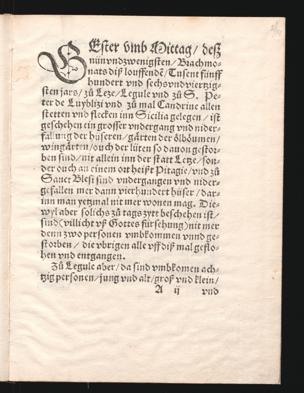 GEster vmb Mittag / desz
nünvndzwenigsten / Brachmo-
nats disz louffendē / Tusent fünff
hundert vnd sechsvndviertzig-
sten jars / zů Leze / Legule vnd zů S. Pe-
ter de Luyblizi vnd zů mal Candrine allen
stetten vnd flecken inn Sicilia gelegen / ist
geschehen ein grosser vndergang vnd nider-
fallung der hüseren / gärten der ölböumen /
wingärten / ouch der lüten so dauon gestor-
ben sind / nit allein inn der statt Letze / son-
der ouch an einem ort heiszt Pitagie / vnd zů
Sanct Blesi sind vndergangen vnd nider-
gefallen mer dann vierhundert hüser / dar-
inn man yetzmal nit mer wonen mag. Die-
wyl aber solichs zů tags zyt beschehen ist /
sind (villicht vsz Gottes fürsehung) nit mer
denn zwo personen vmbkommen vnnd ge-
storben / die übrigen alle vff disz mal geflo-
hen vnd entgangen.
Zů Legule aber / da sind vmbkomen ach-
tzig personen / jung vnd alt / grosz vnd klein /
A ij vnd